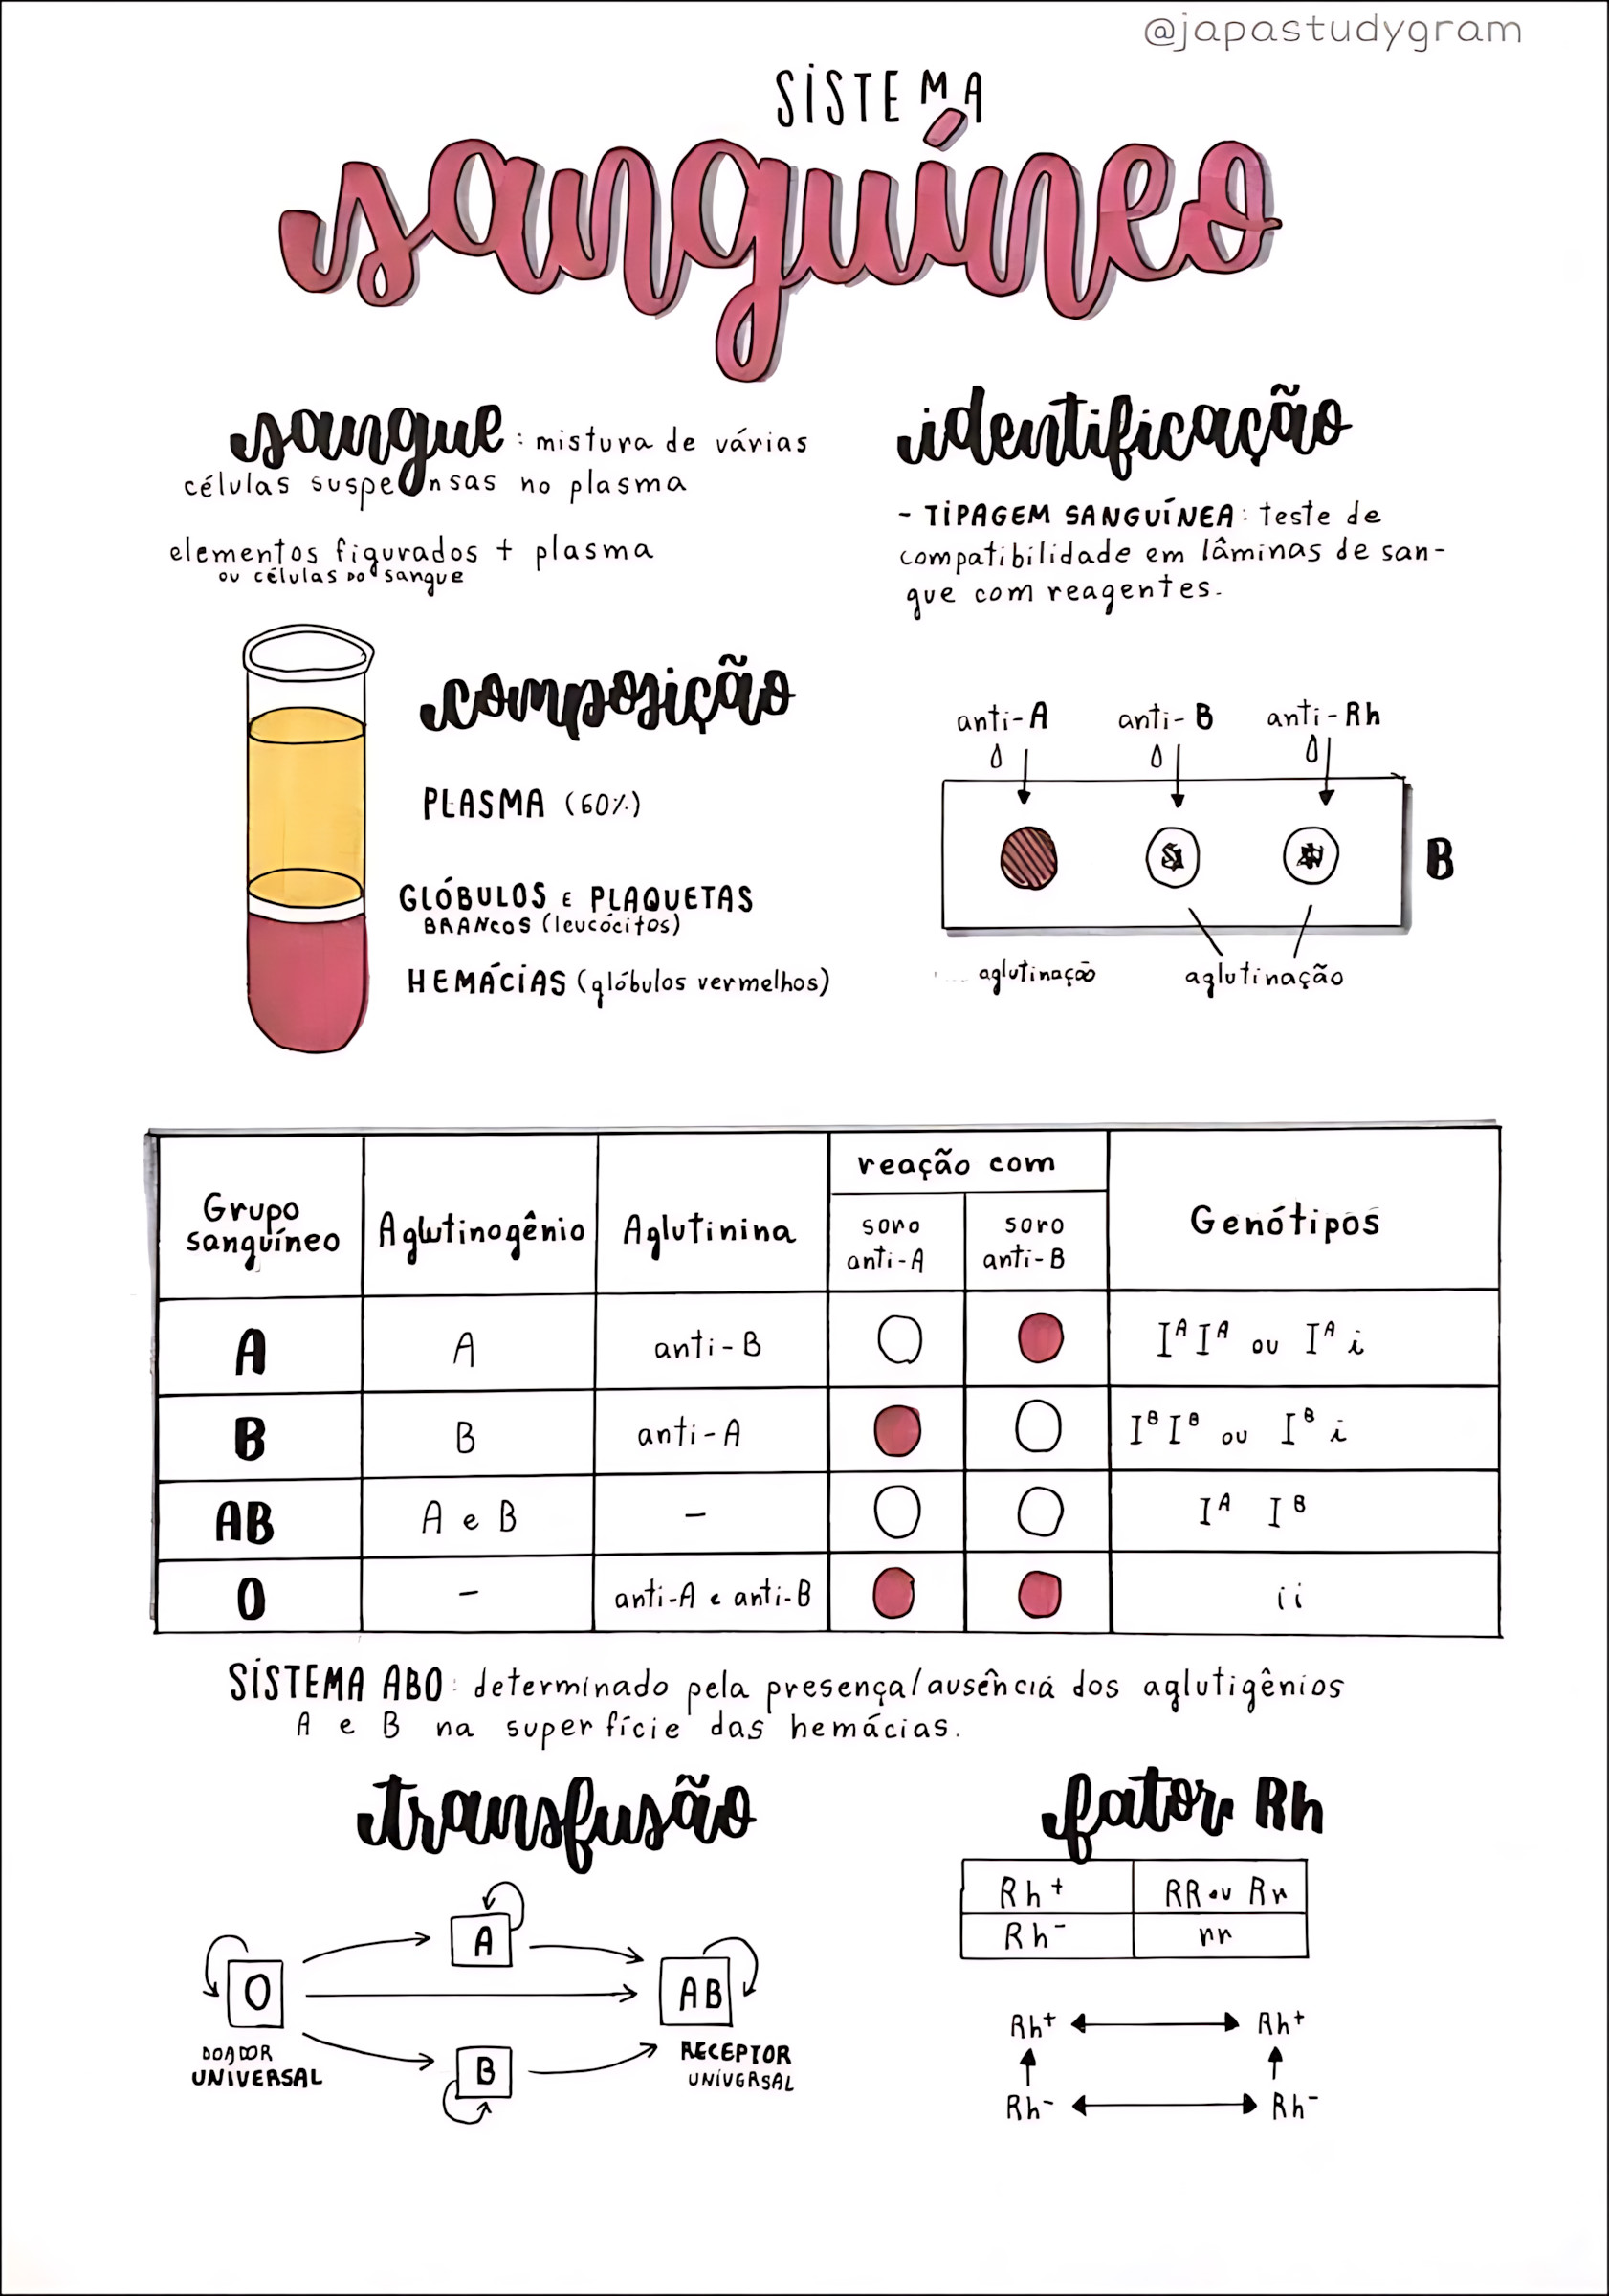 @japastudygram
SISTEMA
sanguíneo
sangue: mistura de várias
células suspensas no plasma
elementos figurados + plasma
ou células do sangue
composição
PLASMA (60%)
GLÓBULOS E PLAQUETAS
BRANCOS (leucócitos)
HEMÁCIAS (glóbulos vermelhos)
identificação
- TIPAGEM SANGUÍNEA: teste de
compatibilidade em lâminas de san-
gue com reagentes.
anti-A anti-B anti-Rh
B
aglutinação aglutinação
reação com
Grupo
sanguíneo Aglutinogênio Aglutinina soro
anti-A soro
anti-B Genótipos
A A anti-B I^A I^A ou I^A i
B B anti-A I^B I^B ou I^B i
AB A e B - I^A I^B
O - anti-A e anti-B ii
SISTEMA ABO: determinado pela presença/ausência dos aglutigênios
A e B na superfície das hemácias.
transfusão
A
O AB
B
DOADOR
UNIVERSAL
RECEPTOR
UNIVERSAL
fator Rh
Rh+ RR ou Rr
Rh- rr
Rh+ Rh+
Rh- Rh-